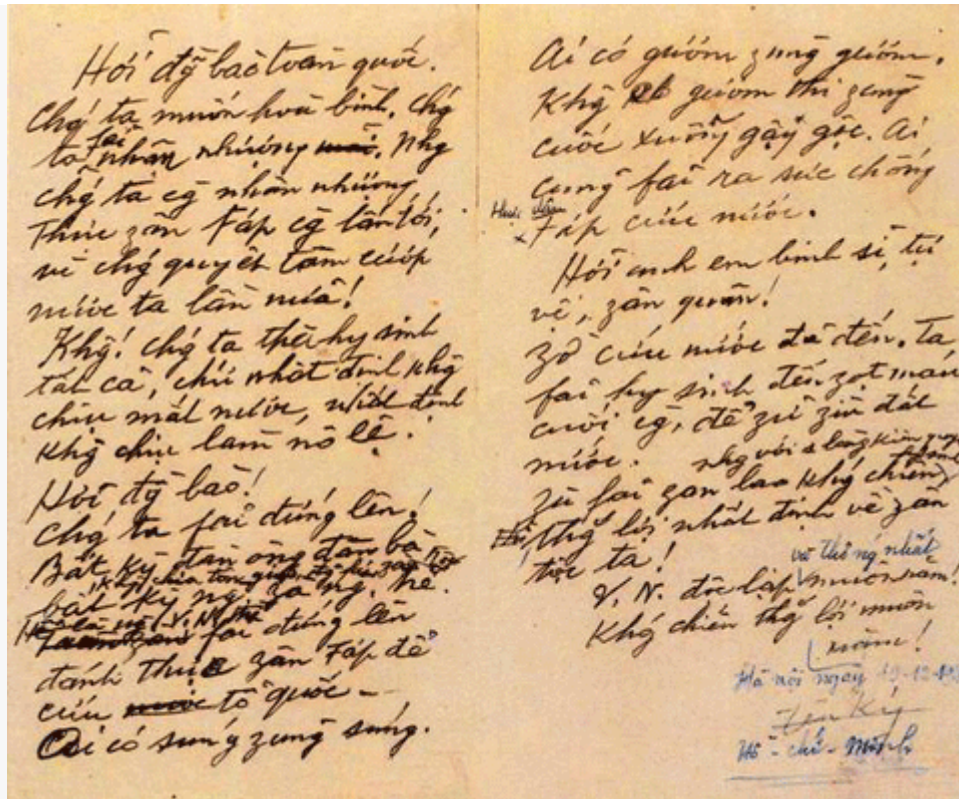 Hỡi đ̄g bào toàn quốc.
Chǵ ta muốn hoà bình, chǵ
ta fải nhân nhượng. Nhg
chǵ ta cg̀ nhân nhượng,
Thực zân Fáp cg̀ lấn tới,
vì chǵ quyết tâm cướp
nước ta lần nữa!
Khg! chǵ ta thà hy sinh
tất cả, chứ nhất định khg
chịu mất nước, nhất định
khg chịu làm nô lệ.
Hỡi đ̄g bào!
Chǵ ta fải đứng lên!
Bất kỳ đàn ông đàn bà
khg chia tôn záo, đảng fái, zân tộc
bất kỳ ng zà ng. trẻ.
Hễ là ng V.N. thì
fải đứng lên
đánh thực zân Fáp để
cứu tổ quốc –
Ai có súng zùng súng.
Ai có gươm zùng gươm,
Khg có gươm thì zùng
cuốc xuổng gậy gộc. Ai
cũng fải ra sức chống
thực dân
Fáp cứu nước.
Hỡi anh em binh sĩ, tự
vệ, zân quân!
Zờ cứu nước đã đến. Ta
fải hy sinh đến zọt máu
cuối cg̀, để zữ zìn đất
nước.
Zù fải zan lao khǵ chiến,
nhg với 1 lòng kiên quyết
hi sinh
thg lợi nhất định về zân
tộc ta!
và thống nhất
V.N. độc lập muôn năm!
Khǵ chiến thg lợi muôn
năm!
Hà nội ngày 19-12-
Hồ-chí-Minh